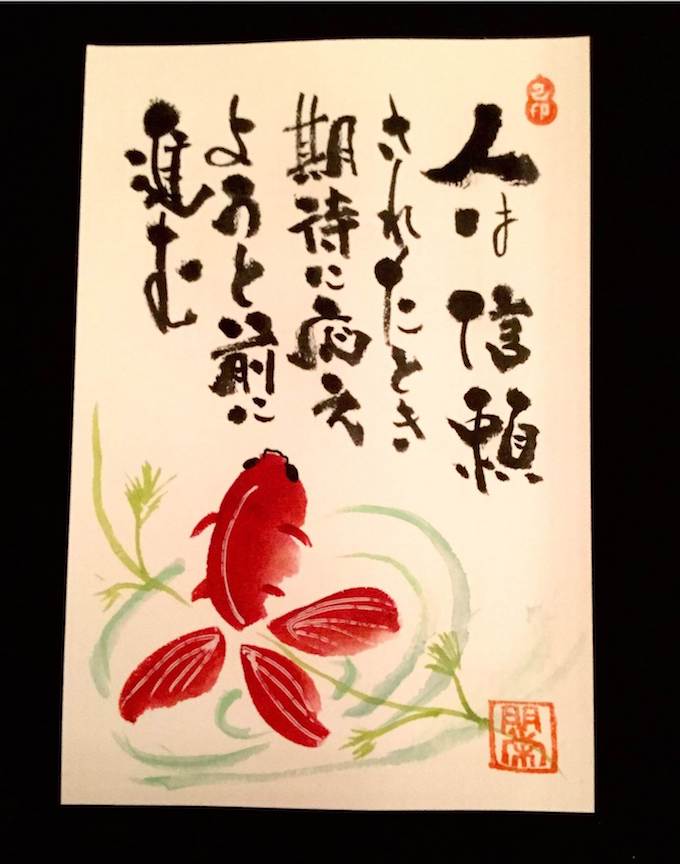 人は信頼
されたとき
期待に応え
ようと前に
進む